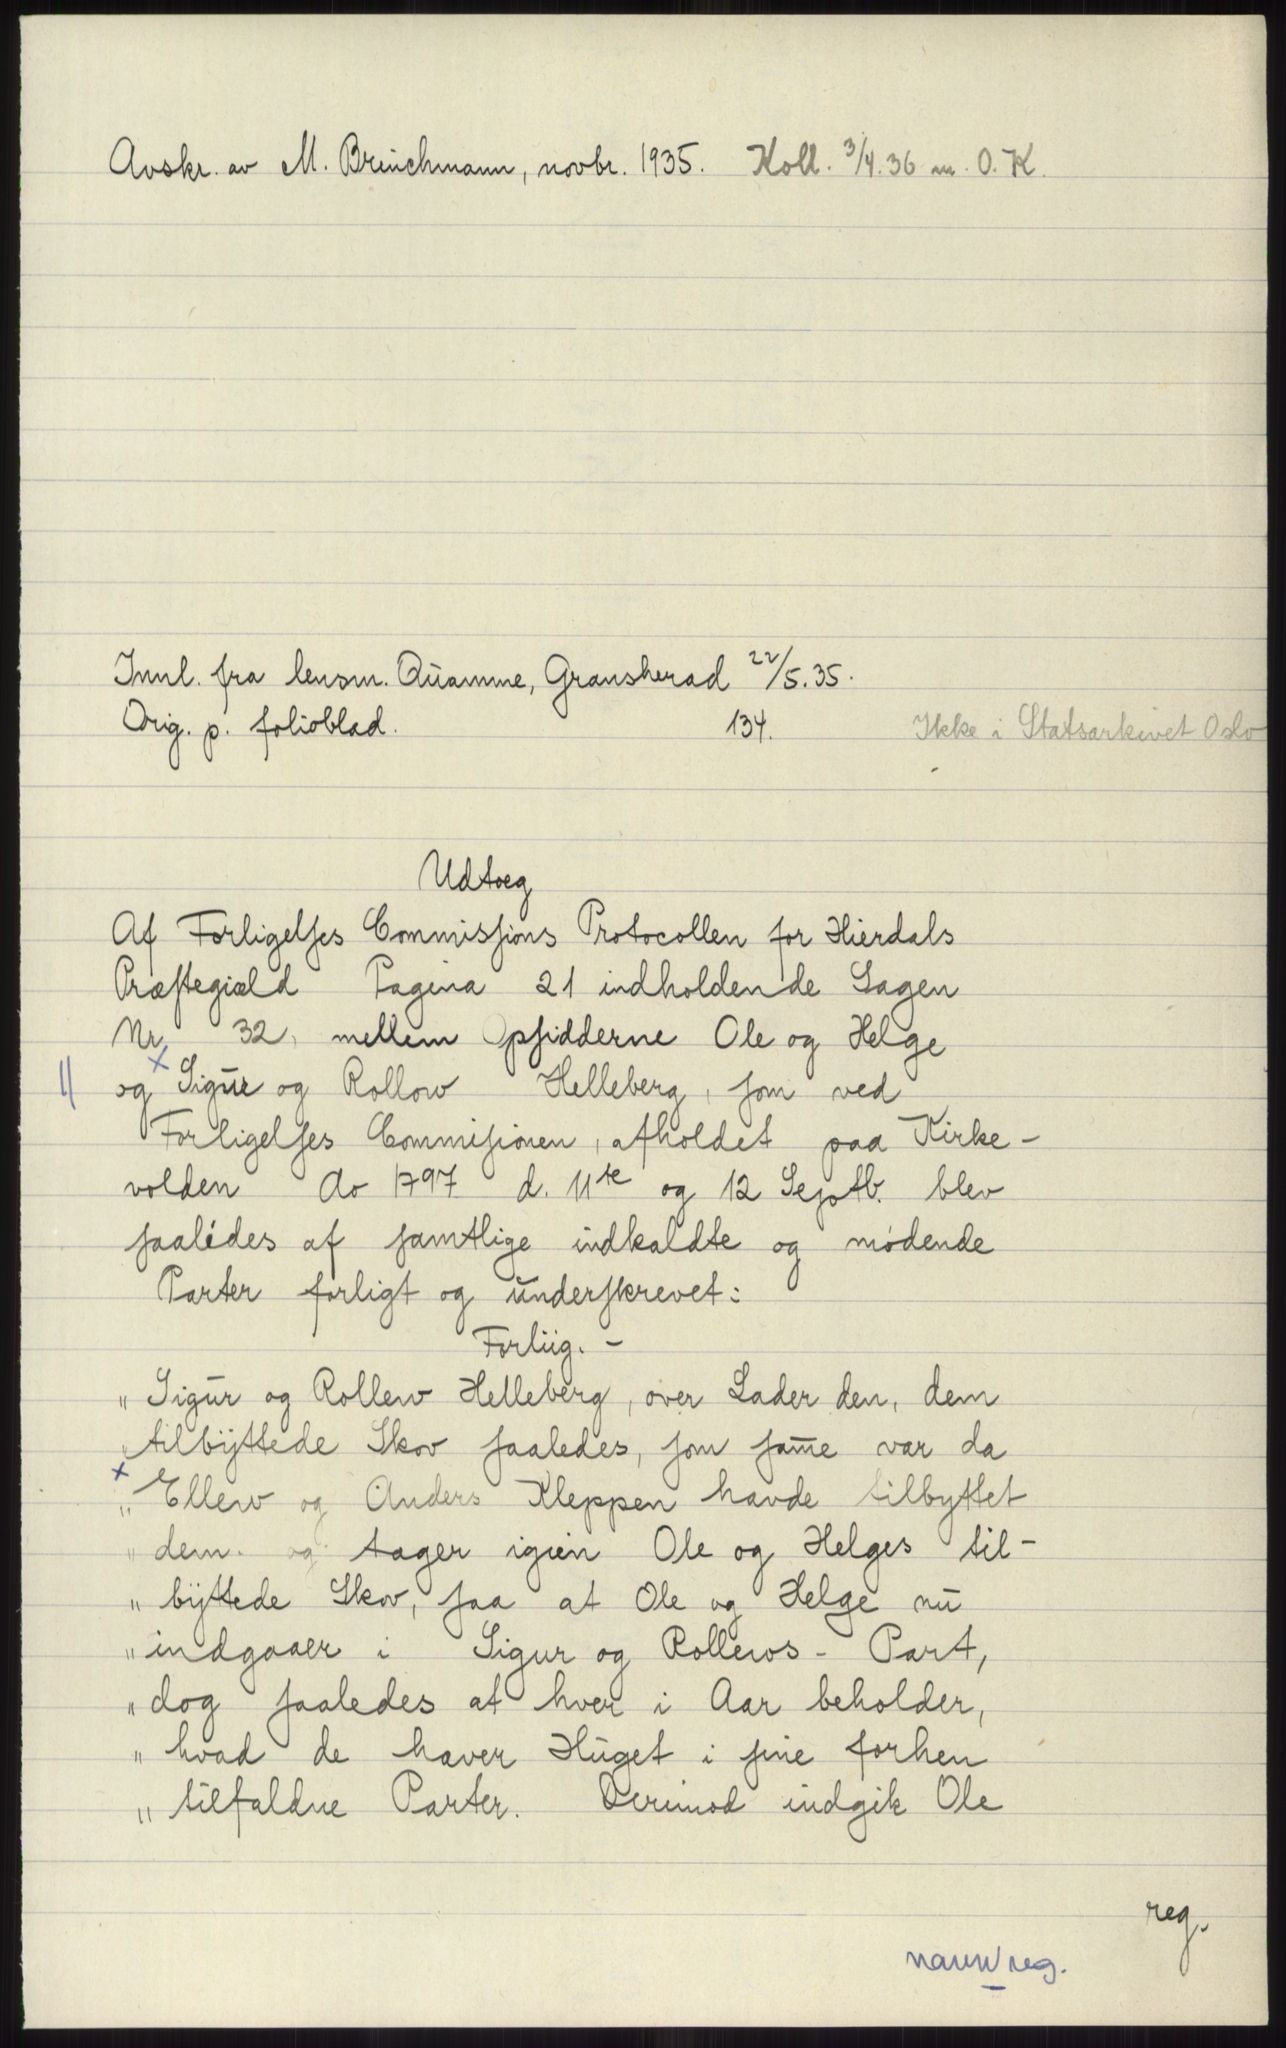 Avskr. av M. Brinchmann, novbr. 1935. Koll. 3/4.36 m. O. K.
Innl. fra lensm. Qŭamme, Gransherad 22/5.35.
Orig. p. folioblad. 134. Ikke i Statsarkivet Oslo
Udtog
Af Forligelses Commissions Protocollen for Hierdals
Præstegiæld Pagina 21 indholdende Sagen
Nr. 32, mellem Opsidderne Ole og Helge
|| og x Sigŭr og Rollow Helleberg, som ved
Forligelses Commissionen, afholdet paa Kirke-
volden Ao 1797 d. 11te og 12 Septb. blev
saaledes af samtlige indkaldte og mødende
Parter forligt og ŭnderskrevet:
Forliig. -
„ Sigŭr og Rollew Helleberg, over Lader den, dem
„ tilbÿttede Skov saaledes, som sam̄e var da
x „ Ellew og Anders Kleppen havde tilbyttet
„ dem. og tager igien Ole og Helges til-
„ bÿttede Skov, saa at Ole og Helge nŭ
„ indgaaer i Sigur og Rollews - Part,
„ dog saaledes at hver i Aar beholder,
„ hvad de haver Hŭget i sine forhen
„ tilfaldne Parter. Derimod indgik Ole
reg.
navnreg.